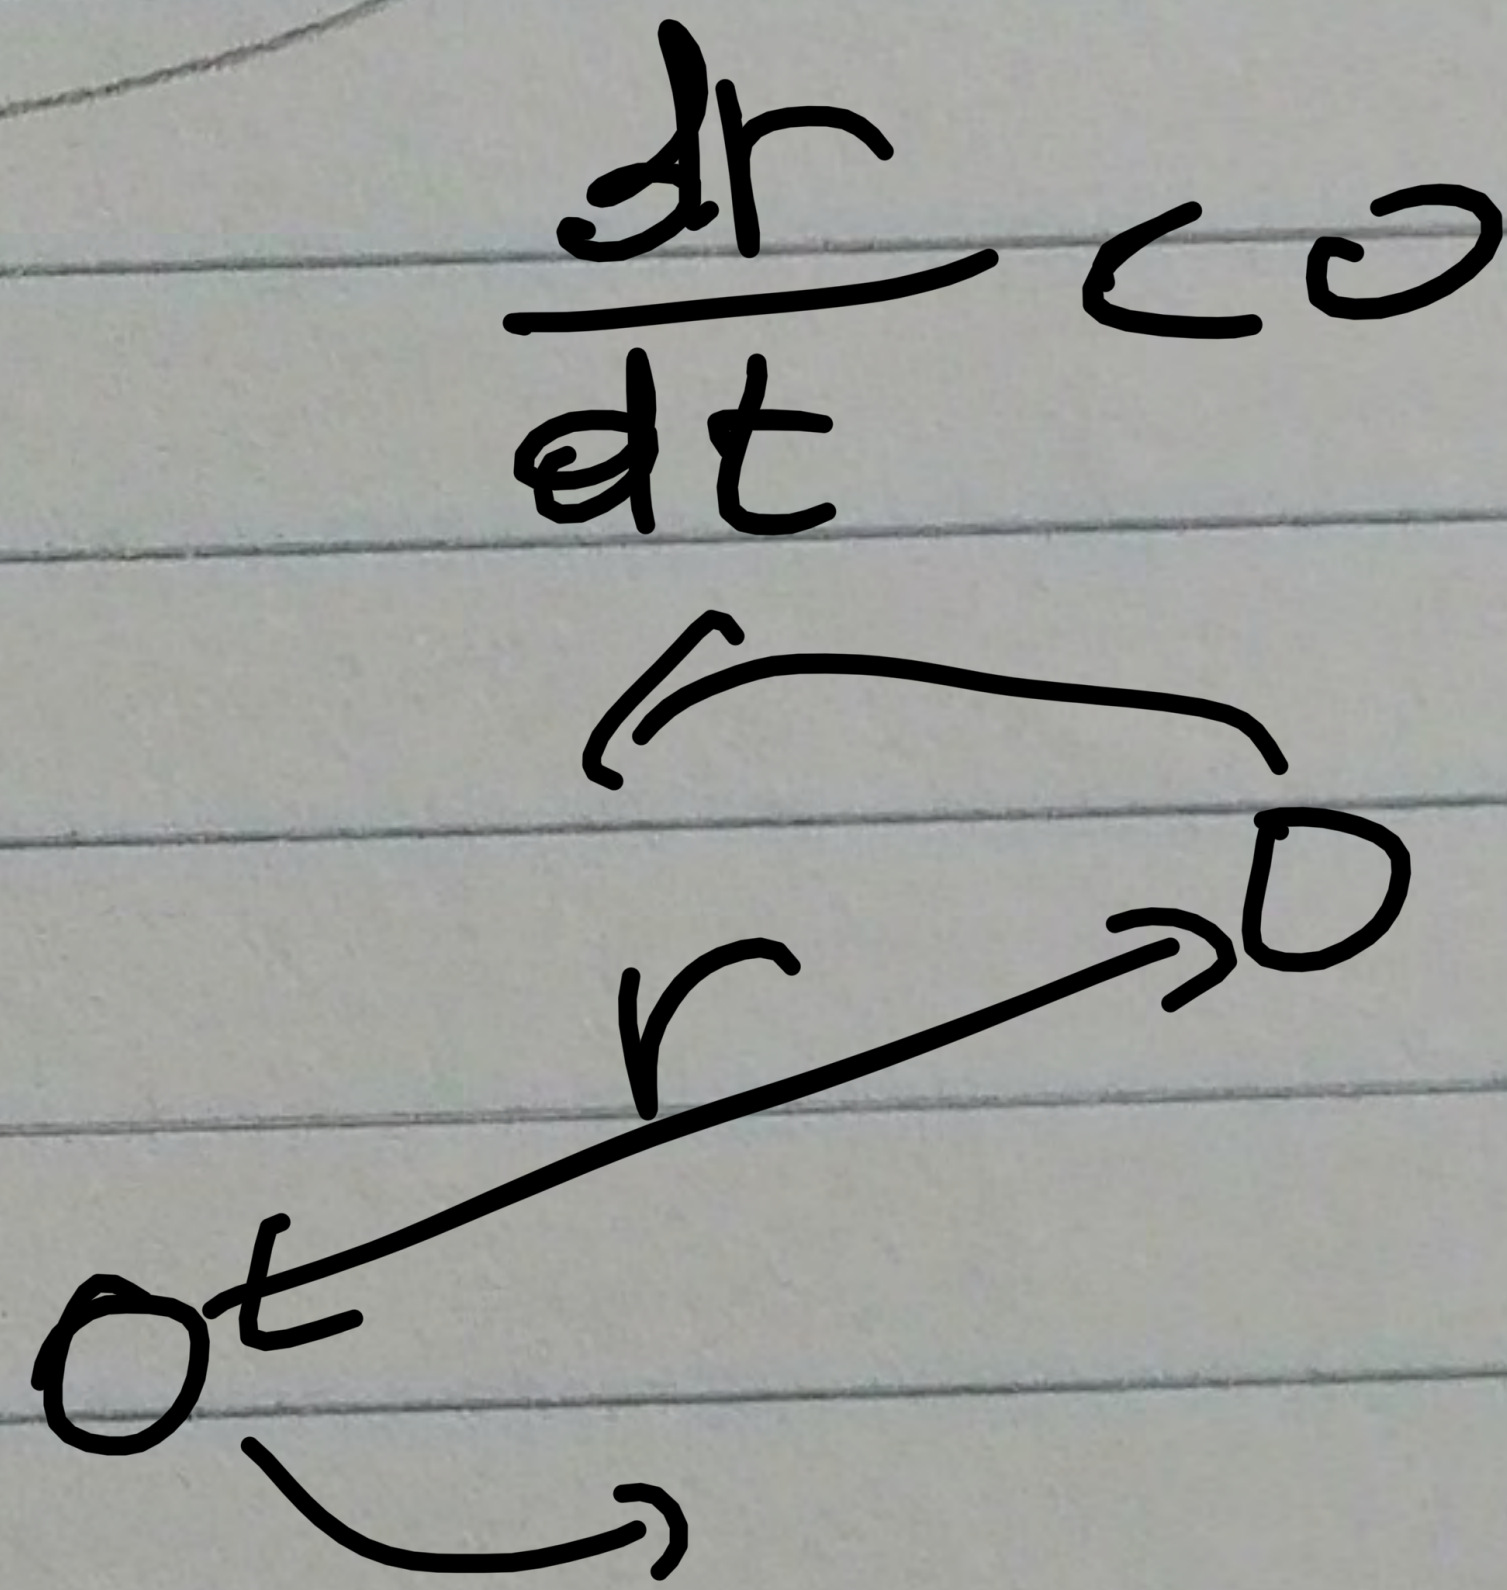 dr
dt
< 0
r